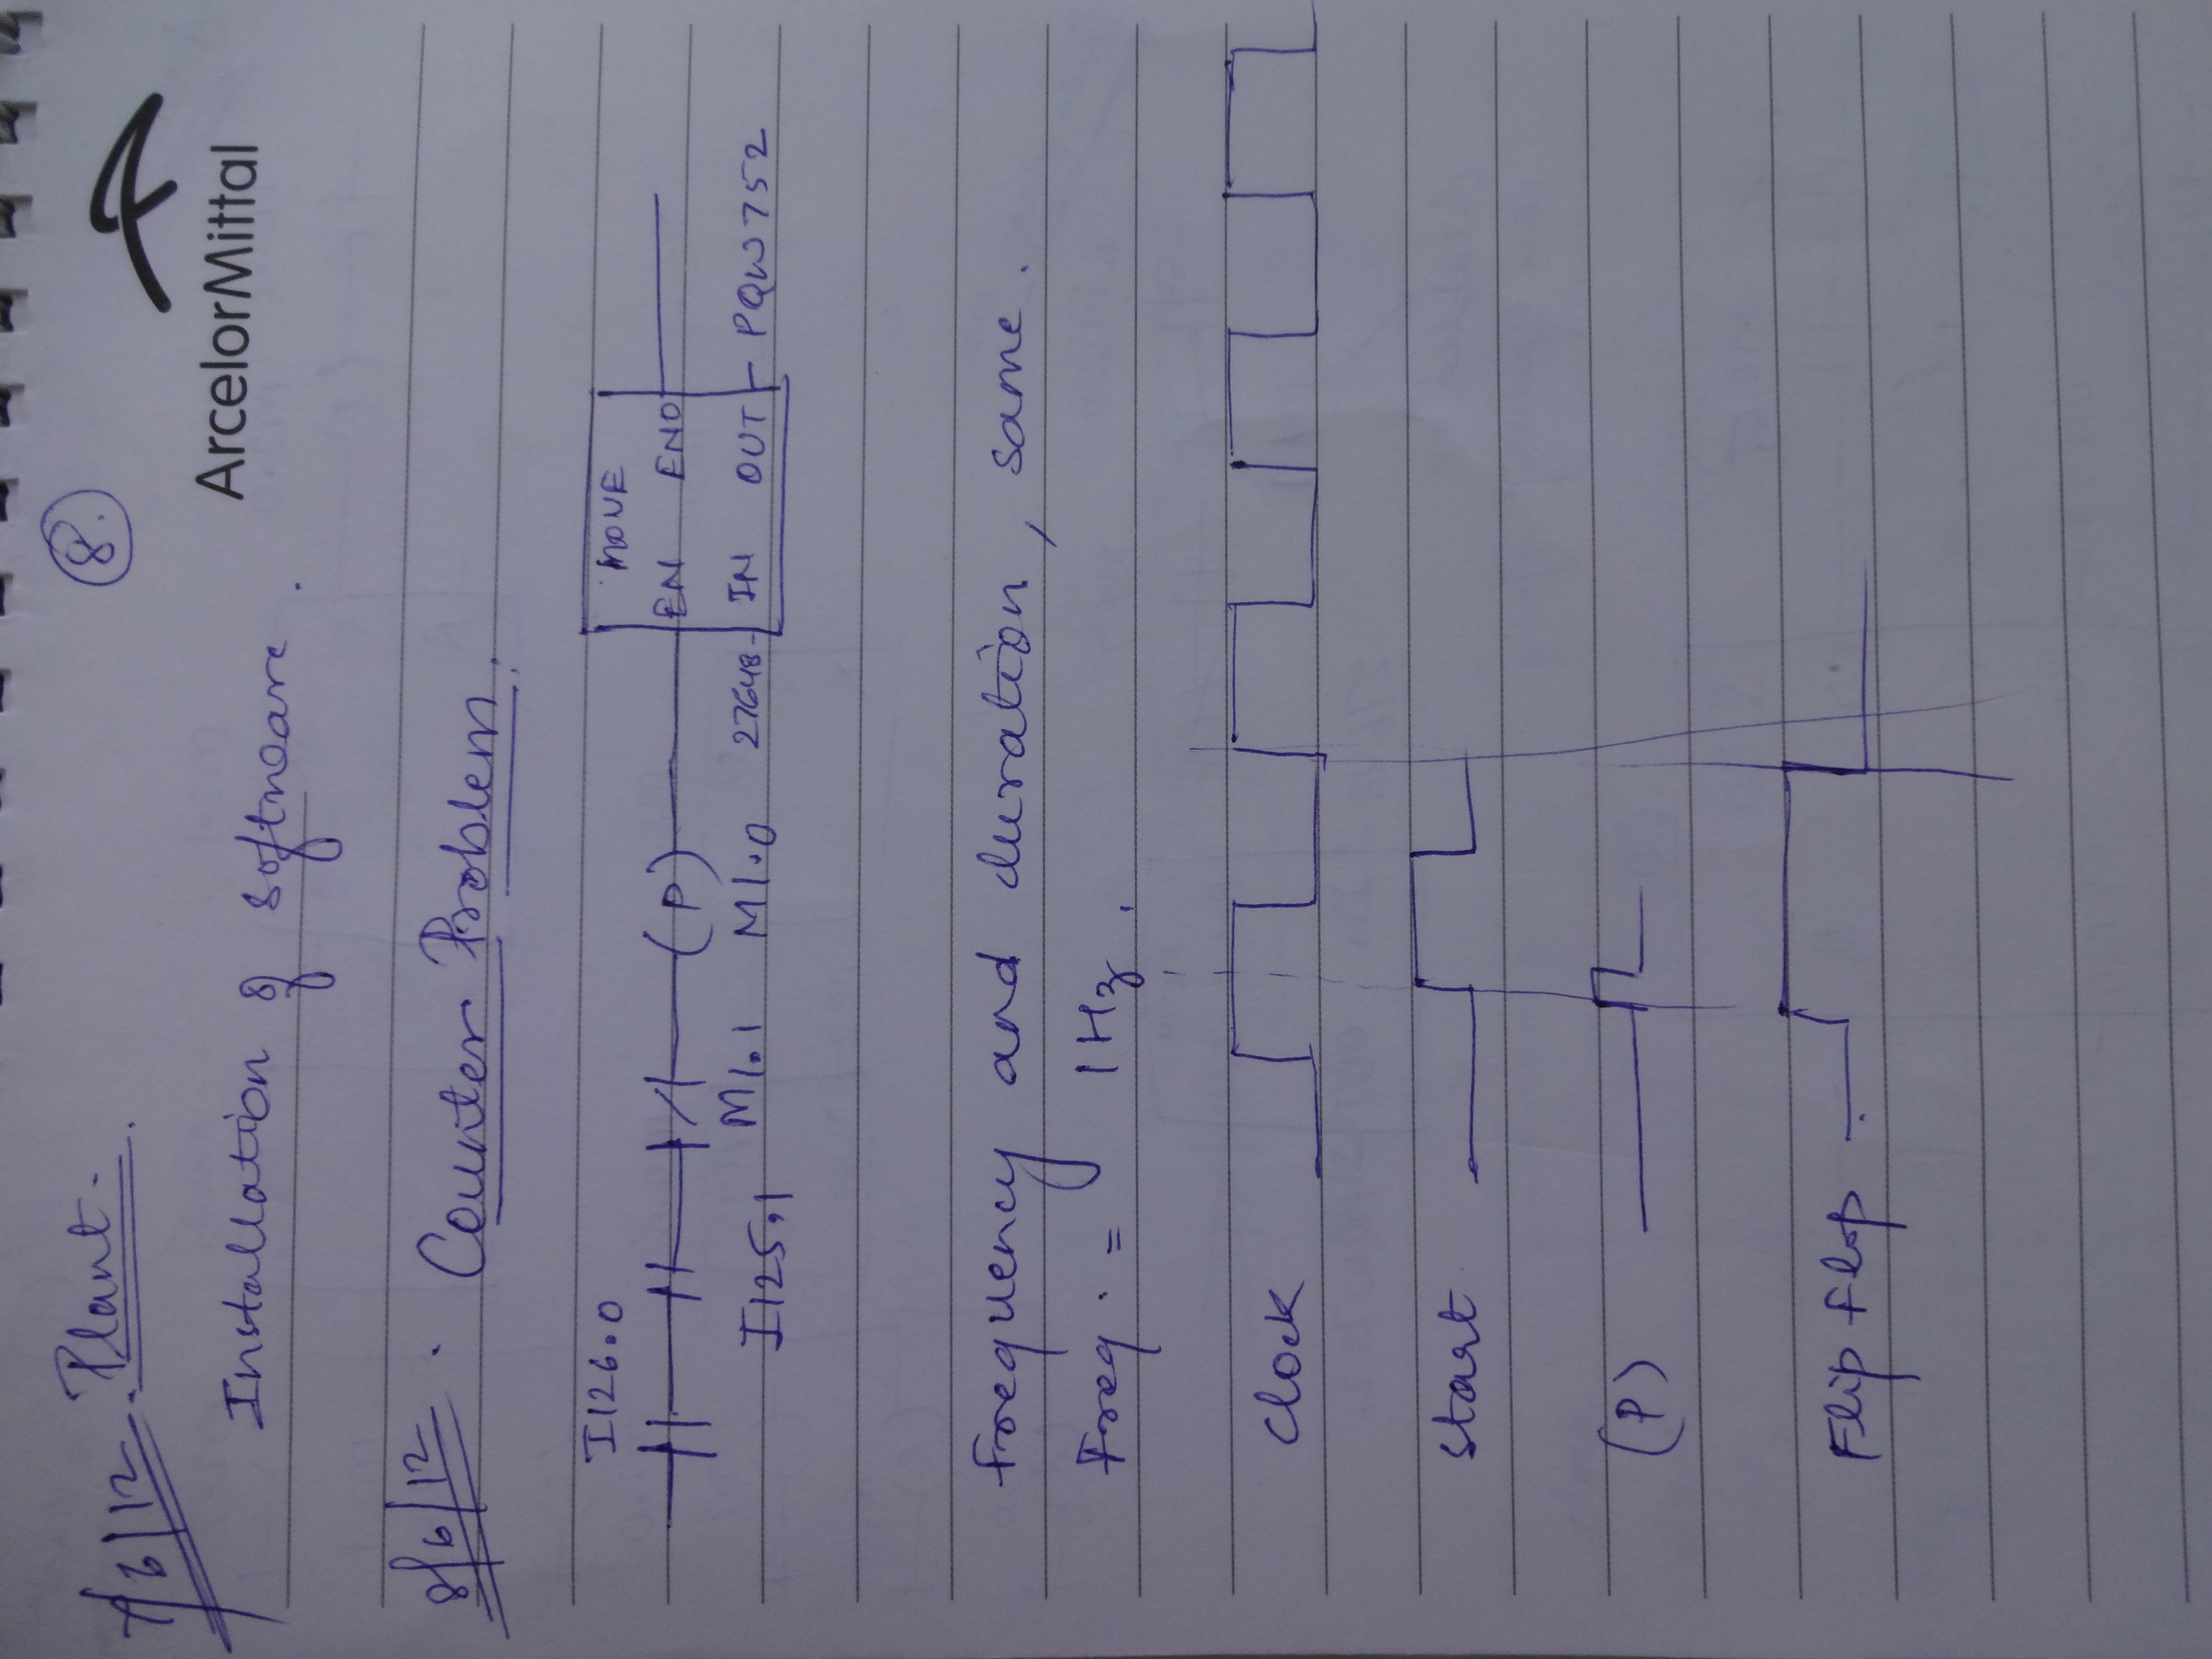 8.
ArcelorMittal
7/6/12. Plant.
Installation of software.
8/6/12. Counter Problem.
I126.0
MOVE
(P) EN ENO
I125.1 M1.1 M1.0 27648 IN OUT PQW752
frequency and duration, same.
Freq. = 1Hz.
Clock
start
(P)
Flip flop